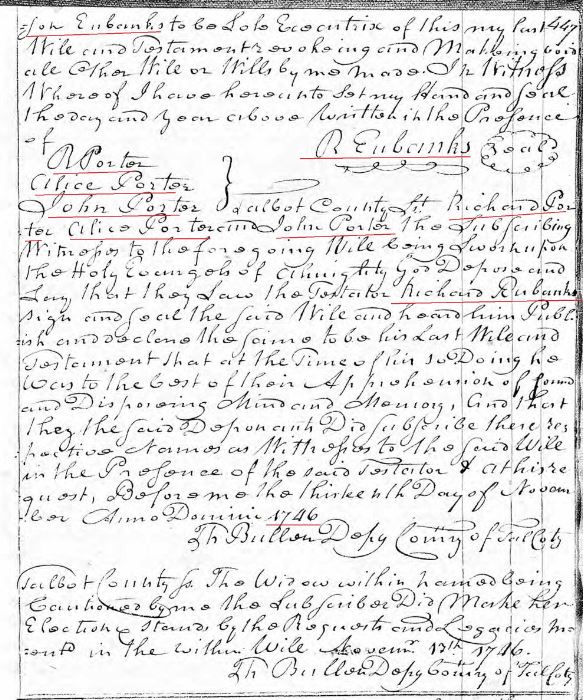 son Eubanks to be Sole Executrix of this my last 447
Will and Testament revokeing and Makeing void
all Other Will or Wills by me made. In Witness
Whereof I have hereunto Set my Hand and Seal
the day and year above Written in the Presence
of R Eubanks Seal
R Porter
Alice Porter
John Porter } Talbot County Ss. Richard Por
ter Alice Porter and John Porter the Subscribing
Witnesses to the foregoing Will being Sworn upon
the Holy Evangels of Almighty God Depose and
Say that they Saw the Testator Richard Eubanks
sign and seal the said Will and heard him Publ
ish and declare the same to be his Last Will and
Testament that at the Time of his so Doing he
Was to the best of their Apprehension of sound
and Disposing Mind and Memory, and that
they the said Deponants Did subscribe there res
pective Names as Witnesses to the said Will
in the Presence of the said Testator & at his re
quest, Before me the thirteenth Day of Novem
ber Anno Domini 1746
Th Bullen Depy Comry of Talbot
Talbot County Ss. The Widow within named being
Cautioned by me the Subscriber Did Make her
Election & Stands by the Requests and Legacies me
in the within Will Novemr 13th 1746.
Th Bullen Depy Comry of Talbot